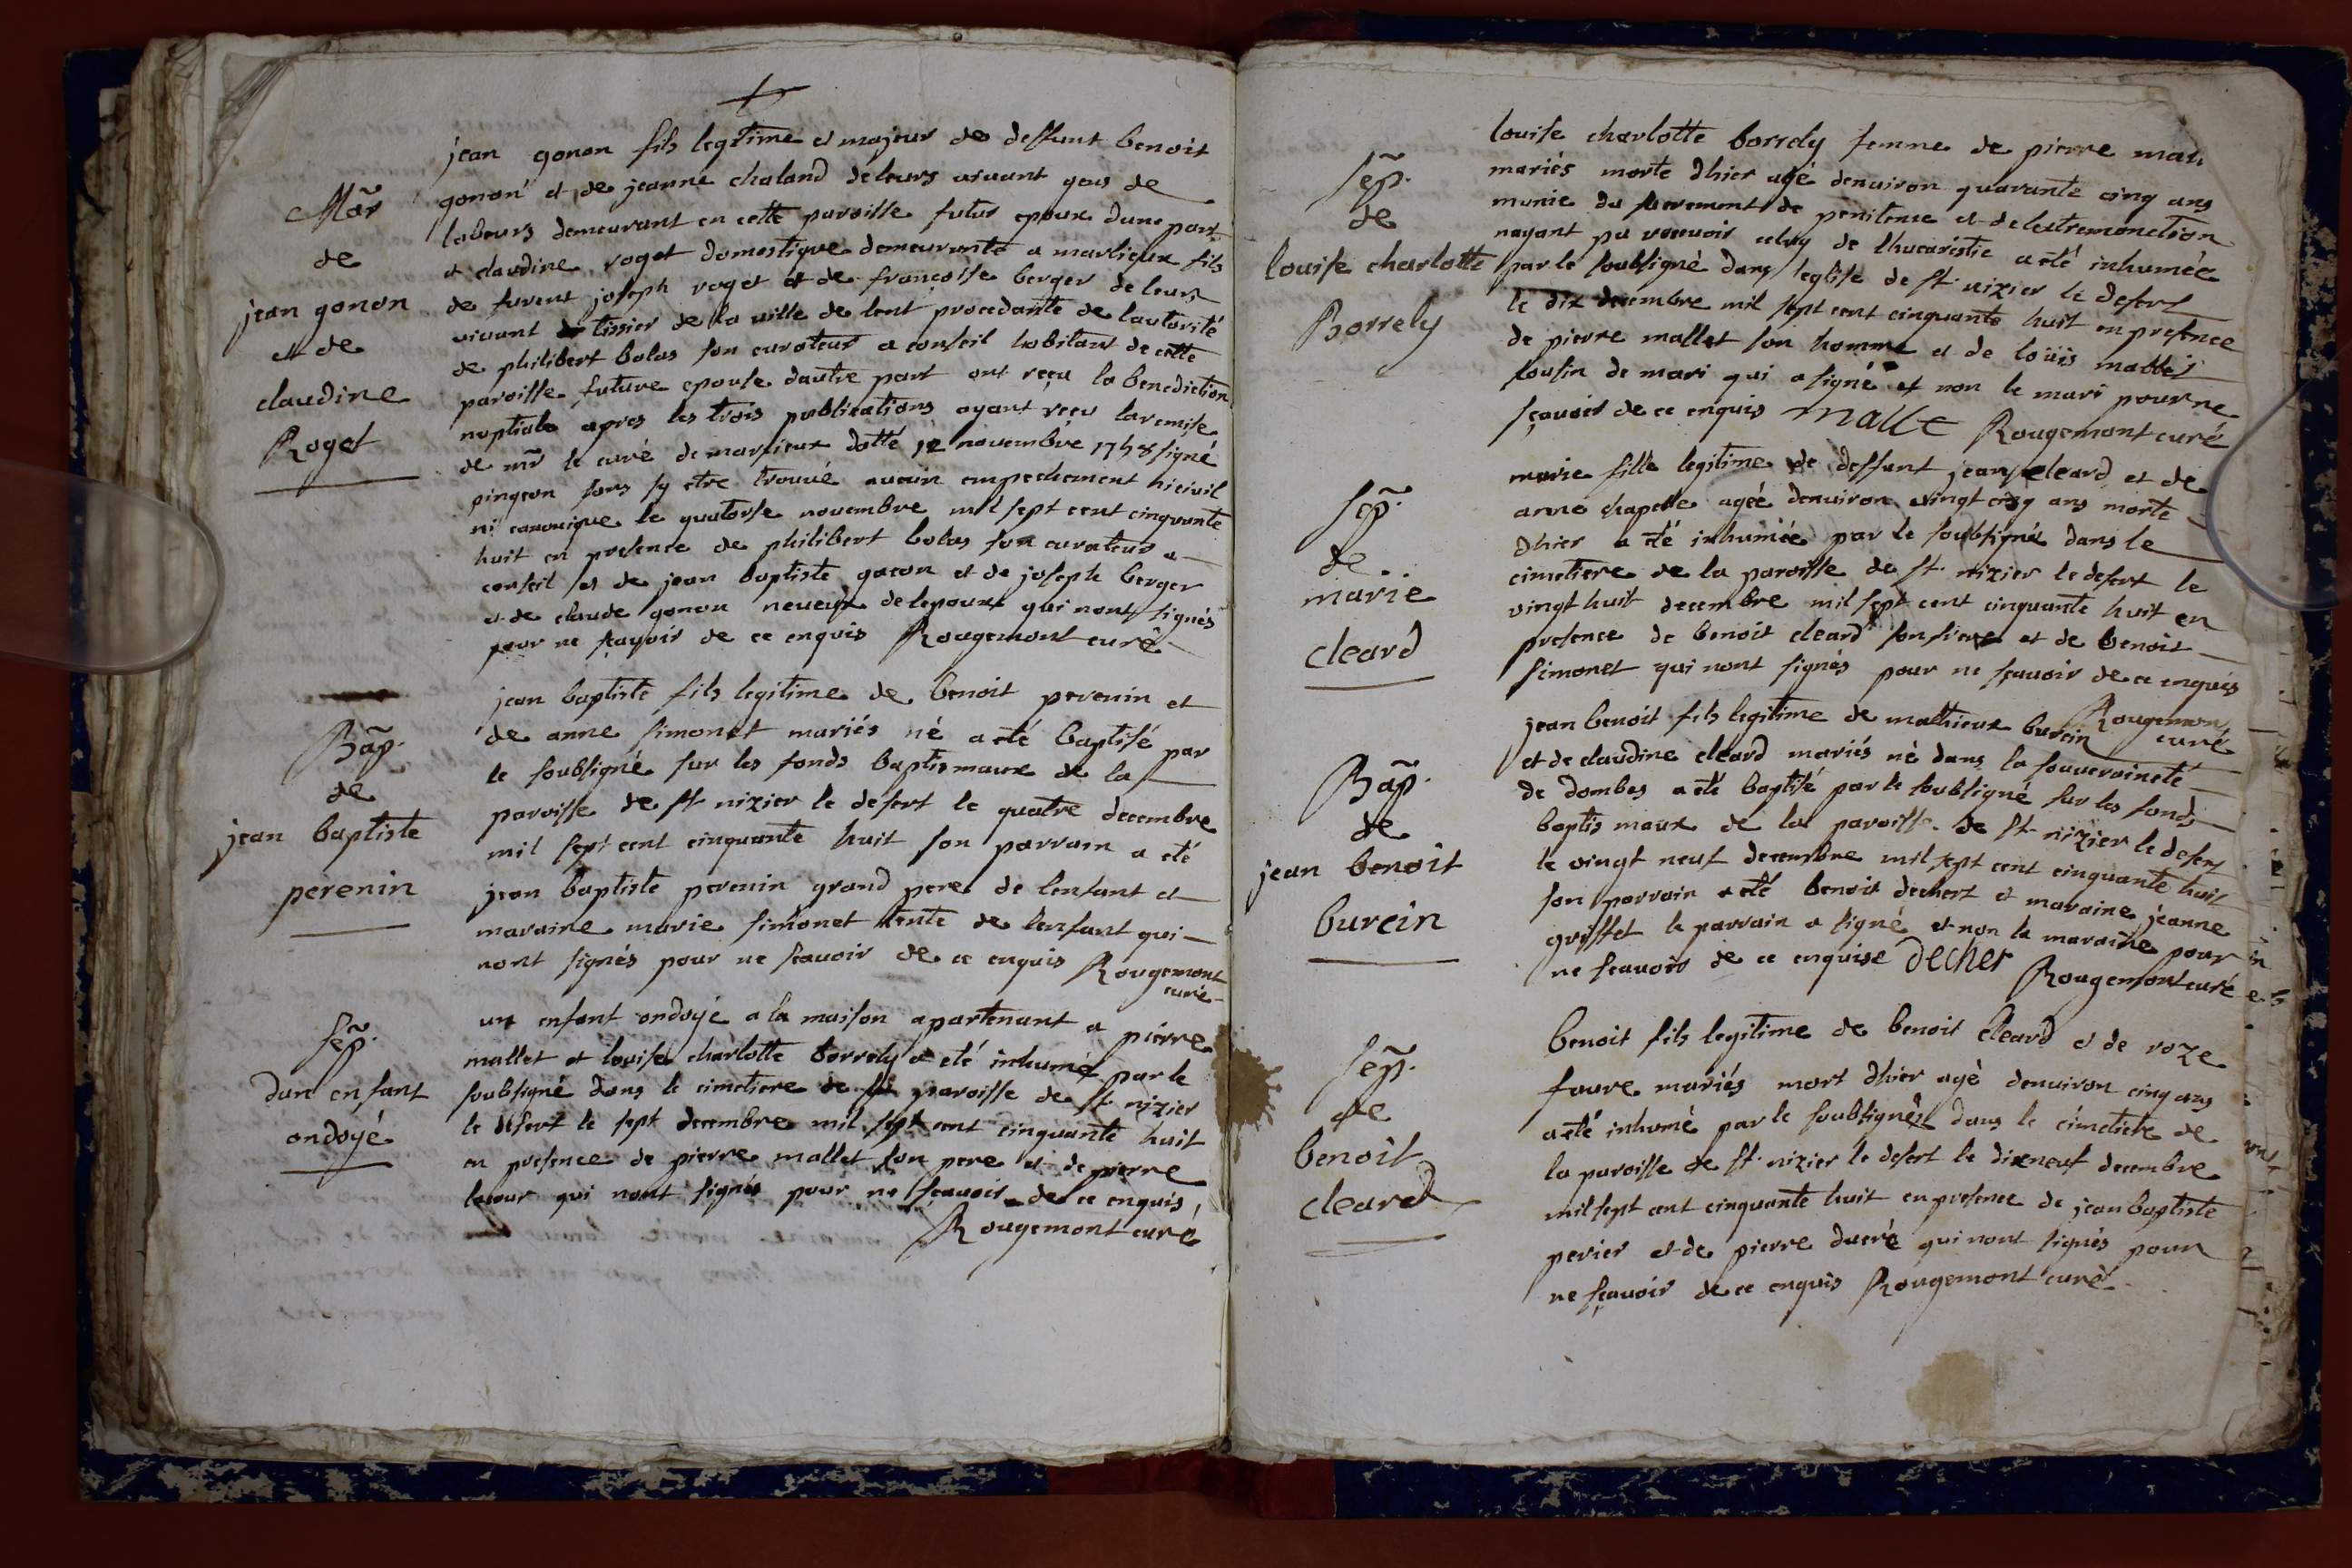 Mar
de
jean gonon
et de
claudine
Roget
jean gonon fils legtime et majeur de deffunt benoit
gonon et de jeanne chaland de leurs vivant gens de
labeurs demeurant en cette paroisse futur epoux dune part
et claudine roget domestique demeurante a marlieux fils
de furent joseph roget et de françoise berger de leurs
vivant tissier de la ville de lent procedante de lautorité
de philibert bolas son curateur a conseil habitant de cette
paroisse future epouse dautre part ont reçu la benediction
nuptiale apres les trois publications ayant reçu la remise
de mr le curé de marlieux datté 12 novembre 1758 signé
pingeon sans sy etre trouvé aucun empechement ni civil
ni canonique le quatorse novembre mil sept cent cinquante
huit en presence de philibert bolas son curateur a
conseil et de jean baptiste gacon et de joseph berger
et de claude gonon neveux de lepoux qui nont signés
pour ne sçavoir de ce enquis Rougemont curé
Bap.
de
jean baptiste
perenin
jean baptiste fils legitime de benoit perenin et
de anne simonet mariés né a eté baptisé par
le soubsigné sur les fonds baptismaux de la
paroisse de st nizier le desert le quatre decembre
mil sept cent cinquante huit son parrain a eté
jean baptiste perenin grand pere de lenfant et
maraine marie simonet tente de lenfant qui
nont signés pour ne scavoir de ce enquis Rougemont
curé
Sep.
dun enfant
ondoyé
un enfant ondoyé a la maison apartenant a pierre
mallet et louise charlotte borrely a eté inhumé par le
soubsigné dans le cimetiere de la paroisse de st nizier
le desert le sept decembre mil sept cent cinquante huit
en presence de pierre mallet son pere et de pierre
lacour qui nont signés pour ne sçavoir de ce enquis
Rougemont curé
Sep.
de
louise charlotte
Borrely
louise charlotte borrely femme de pierre
mariés morte dhier agé denviron quarante cinq ans
munie du sacrement de penitence et de lextremonction
nayant pu recevoir celuy de lhucaristie a eté inhumée
par le soubsigné dans leglise de st nizier le desert
le dix decembre mil sept cent cinquante huit en presence
de pierre mallet son homme et de loüis mallet
cousin de mari qui a signé et non le mari pour ne
sçavoir de ce enquis malle Rougemont curé
Sep.
de
marie
cleard
marie fille legitime de deffunt jean cleard et de
anne chapelle agée denviron vingt cinq ans morte
dhier a eté inhumée par le soubsigné dans le
cimetiere de la paroisse de st nizier le desert le
vingt huit decembre mil sept cent cinquante huit en
presence de benoit cleard son frere et de benoit
simonet qui nont signés pour ne sçavoir de ce enquis
Rougemont
curé
Bap.
de
jean benoit
burcin
jean benoit fils legitime de mathieux burcin
et de claudine cleard mariés né dans la souveraineté
de dombes a eté baptisé par le soubsigné sur les fonds
baptis maux de la paroisse de st nizier le desert
le vingt neuf decembre mil sept cent cinquante huit
son parrain a eté benoit dechert et maraine jeanne
griffet le parrain a signé et non la maraine pour
ne scavoir de ce enquise decher Rougemont curé
Sep.
de
benoit
cleard
benoit fils legitime de benoit cleard et de roze
favre mariés mort dhier agé denviron cinq ans
a eté inhumé par le soubsigné dans le cimetiere de
la paroisse de st nizier le desert le dixneuf decembre
mil sept cent cinquante huit en presence de jean baptiste
perier et de pierre ducré qui nont signés pour
ne sçavoir de ce enquis Rougemont curé